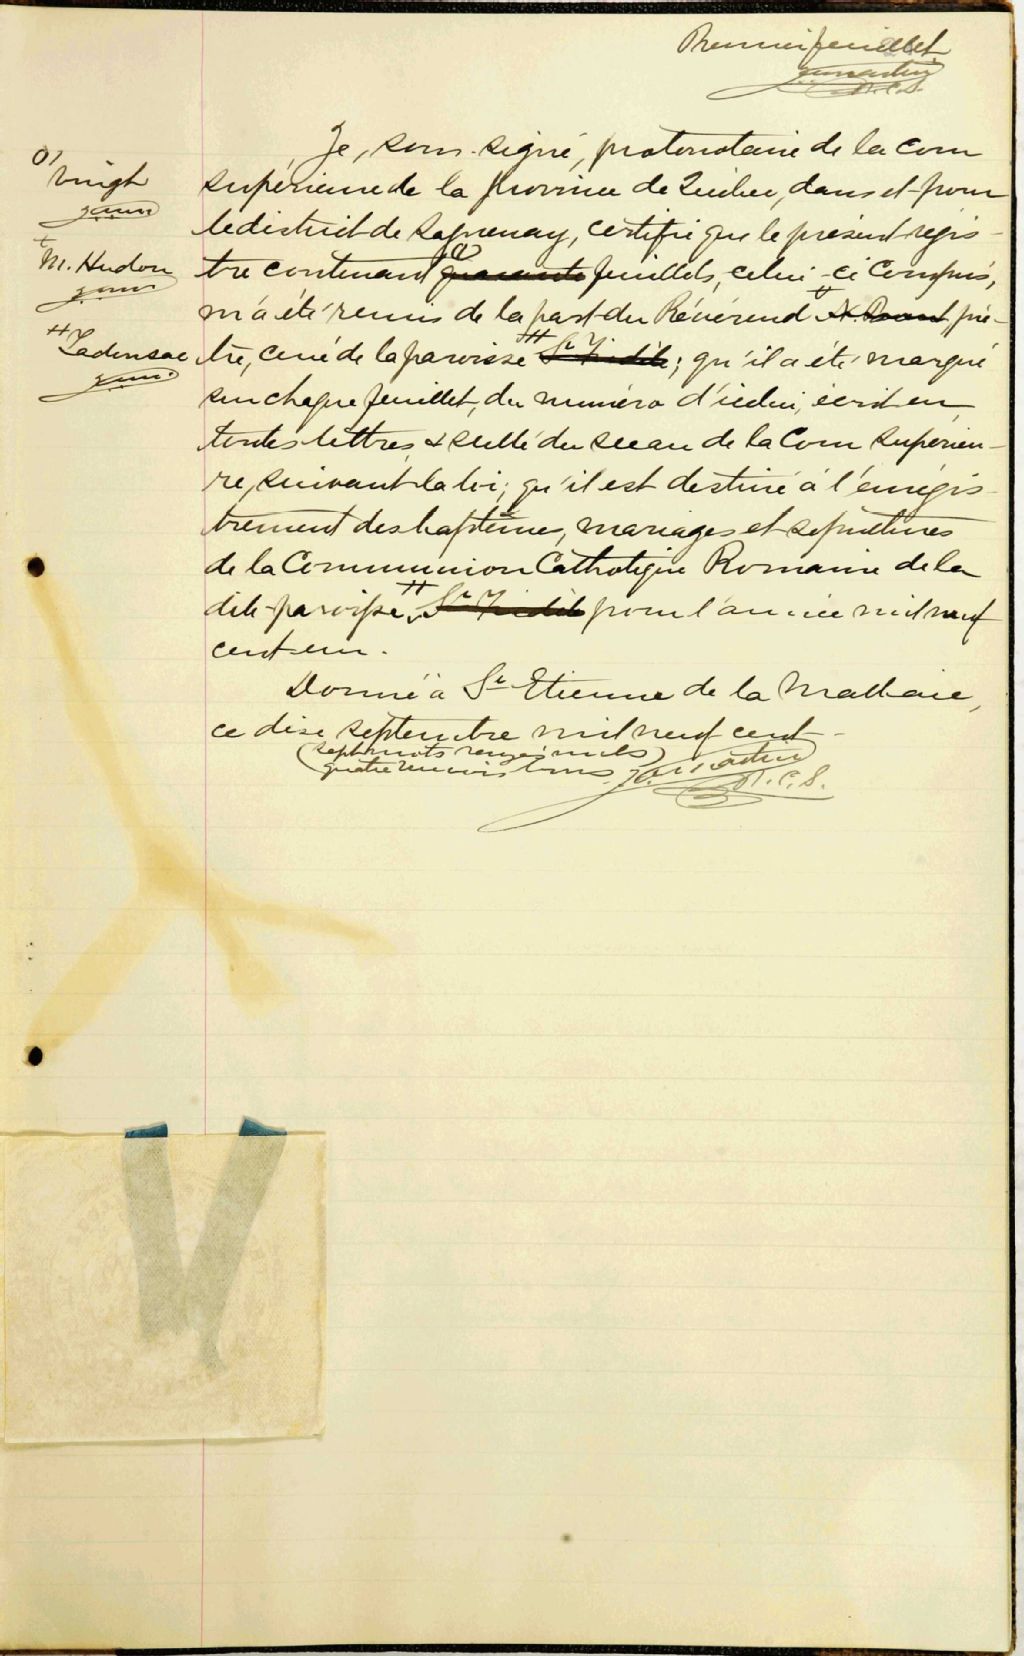 Premier feuillet
P.C.S.
Je, sous-signé, protonotaire de la Cour
supérieure de la province de Québec, dans et pour
le district de Saguenay, certifie que le présent régis-
tre contenant quarante feuillets, celui-ci compris,
m'a été remis de la part du Révérend prê-
tre, curé de la paroisse St Fidèle; qu'il a été marqué
sur chaque feuillet, du numéro d'icelui, écrit en
toutes lettres & scellé du sceau de la Cour supérieu-
re, suivant la loi; qu'il est destiné à l'enrégis-
trement des baptêmes, mariages et sépultures
de la Communion Catholique Romaine de la
dite paroisse, St Fidèle pour l'année mil neuf
cent un.
Donné à St Etienne de la Malbaie,
ce dix septembre mil neuf cent.
(sept mots rayés nuls)
quatre renvois bons.
P.C.S.
vingt
M. Hudon
Tadousac